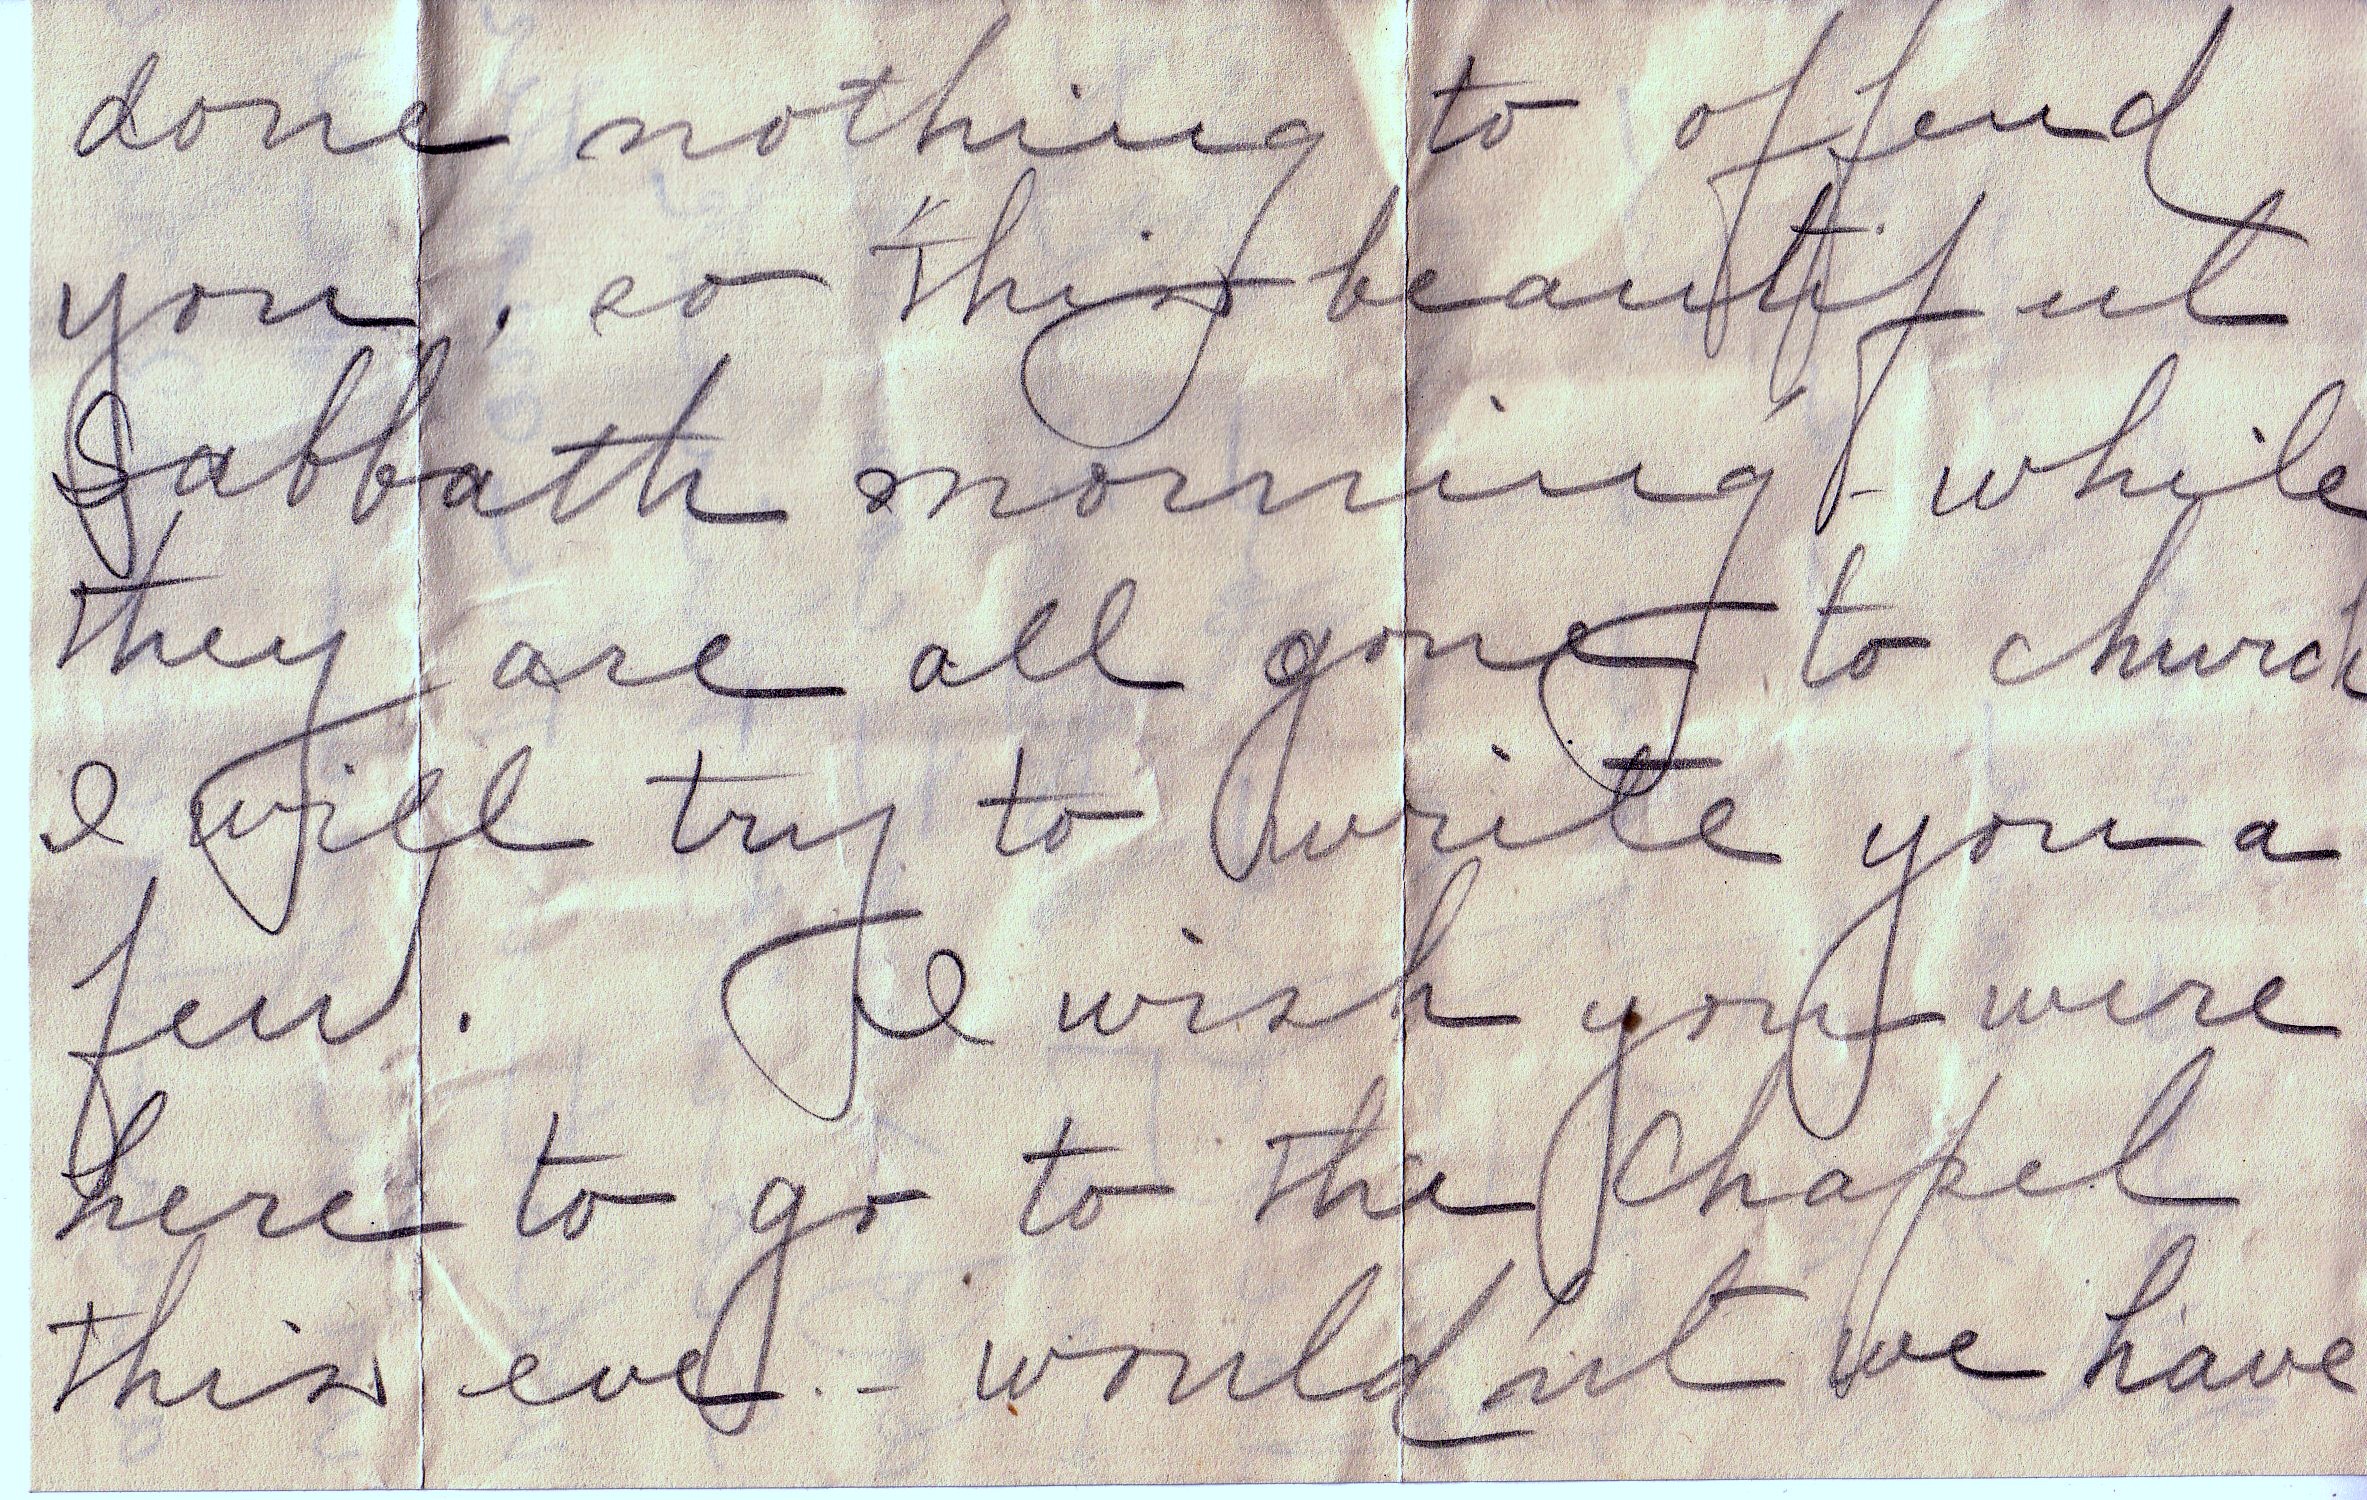 done nothing to offend
you, so this beautiful
Sabbath morning - while
they are all gone to church
I will try to write you a
few. I wish you were
here to go to the Chapel
this eve. - would'nt we have